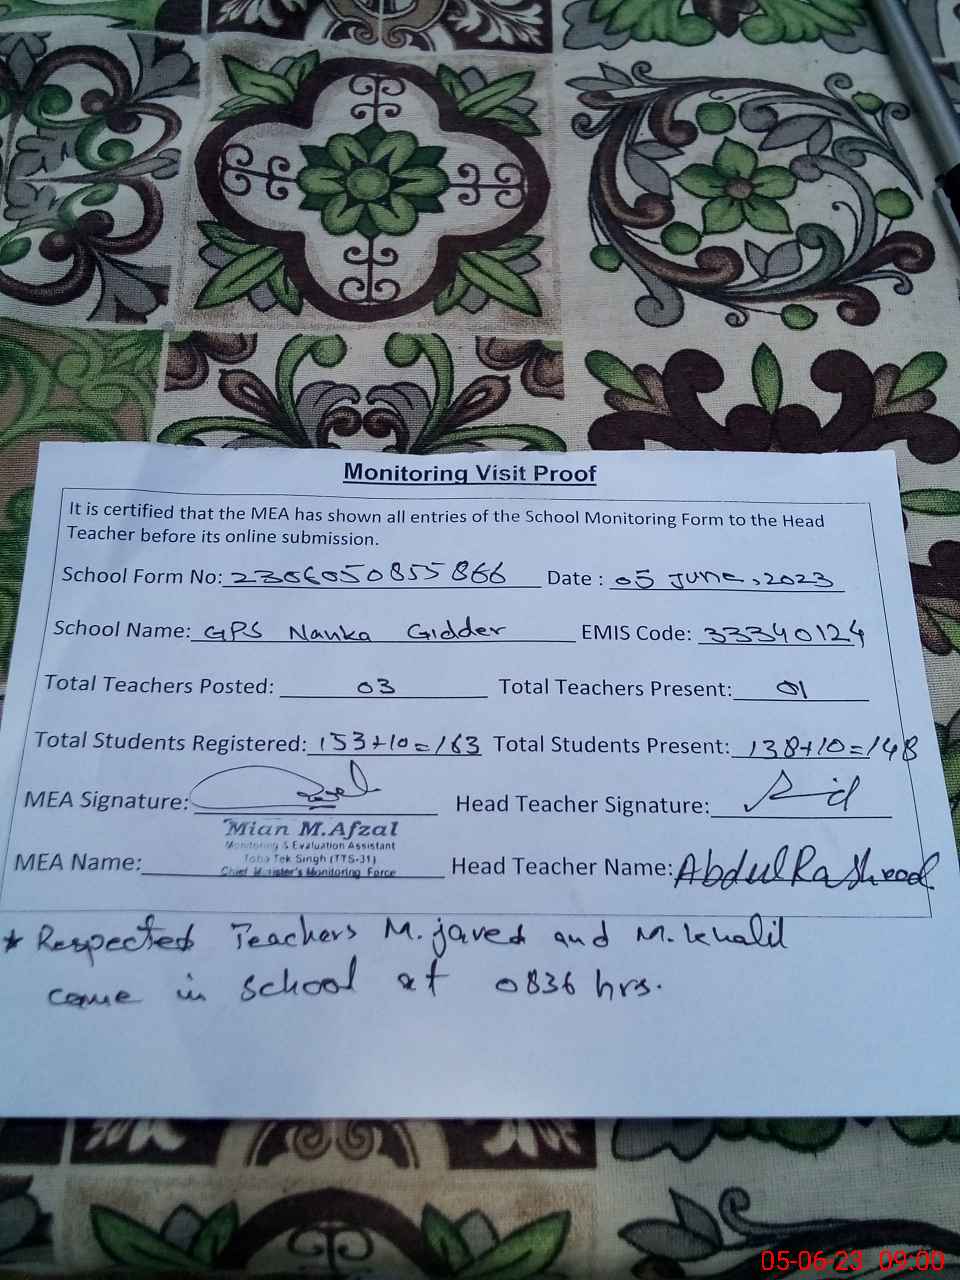 Monitoring Visit Proof
It is certified that the MEA has shown all entries of the School Monitoring Form to the Head
Teacher before its online submission.
School Form No: 2306050855866 Date : 05 June, 2023
School Name: GPS Nanka Gidder EMIS Code: 33340124
Total Teachers Posted: 03 Total Teachers Present: 01
Total Students Registered: 153+10=163 Total Students Present: 138+10=148
MEA Signature: Head Teacher Signature:
Mian M.Afzal
Monitoring & Evaluation Assistant
Toba Tek Singh (TTS-31)
Chief Minister's Monitoring Force
MEA Name: Head Teacher Name: Abdul Rasheed
* Respected Teachers M. javed and M. khalil
come in school at 0836 hrs.
05-06-23 09:00